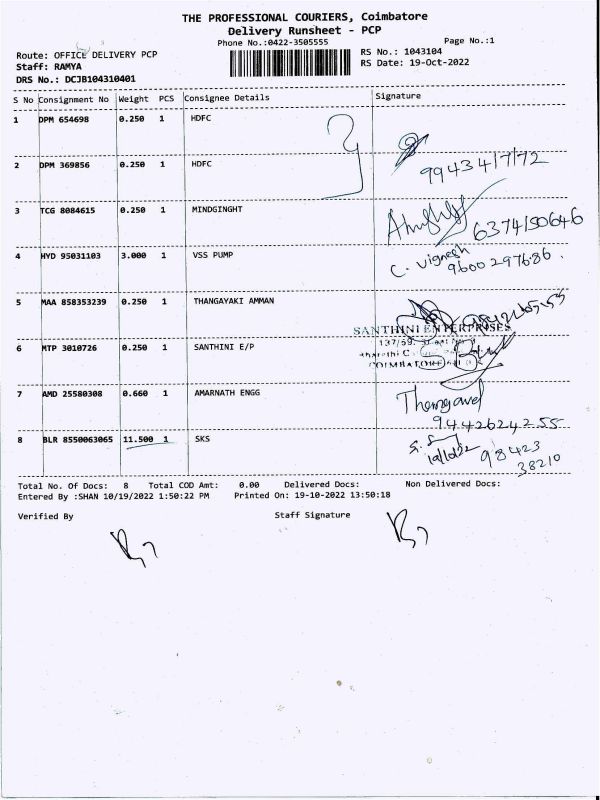 THE PROFESSIONAL COURIERS, Coimbatore
Delivery Runsheet - PCP
Phone No.:0422-3505555 Page No.:1
Route: OFFICE DELIVERY PCP RS No.: 1043104
Staff: RAMYA RS Date: 19-Oct-2022
DRS No.: DCJB104310401
S No Consignment No Weight PCS Consignee Details Signature
1 DPM 654698 0.250 1 HDFC
2 DPM 369856 0.250 1 HDFC
9943417172
3 TCG 8084615 0.250 1 MINDGINGHT
6374150646
4 HYD 95031103 3.000 1 VSS PUMP C. Vignesh
9600297686.
5 MAA 858353239 0.250 1 THANGAYAKI AMMAN
SANTHINI ENTERPRISES
137/59.
6 MTP 3010726 0.250 1 SANTHINI E/P
COIMBATORE
7 AMD 25580308 0.660 1 AMARNATH ENGG
9442624255
8 BLR 8550063065 11.500 1 SKS
98423
38210
Total No. Of Docs: 8 Total COD Amt: 0.00 Delivered Docs: Non Delivered Docs:
Entered By :SHAN 10/19/2022 1:50:22 PM Printed On: 19-10-2022 13:50:18
Verified By Staff Signature